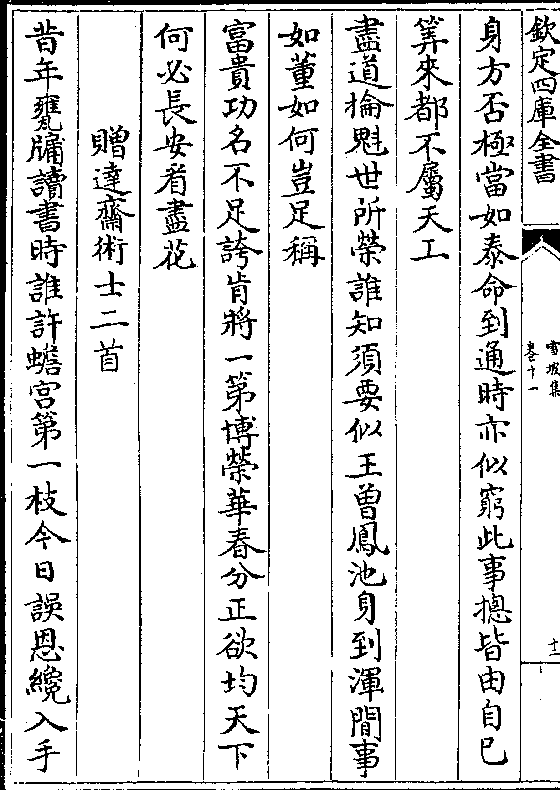 欽定四庫全書
雪坡集
卷十一
十二
身方否極當如泰命到通時亦似窮此事摠皆由自己
筭來都不屬天工
盡道掄魁世所榮誰知須要似王曾鳳池身到渾閒事
如董如何豈足稱
富貴功名不足誇肯將一第博榮華春分正欲均天下
何必長安看盡花
贈達齋術士二首
昔年甕牖讀書時誰許蟾宫第一枝今日誤恩纔入手